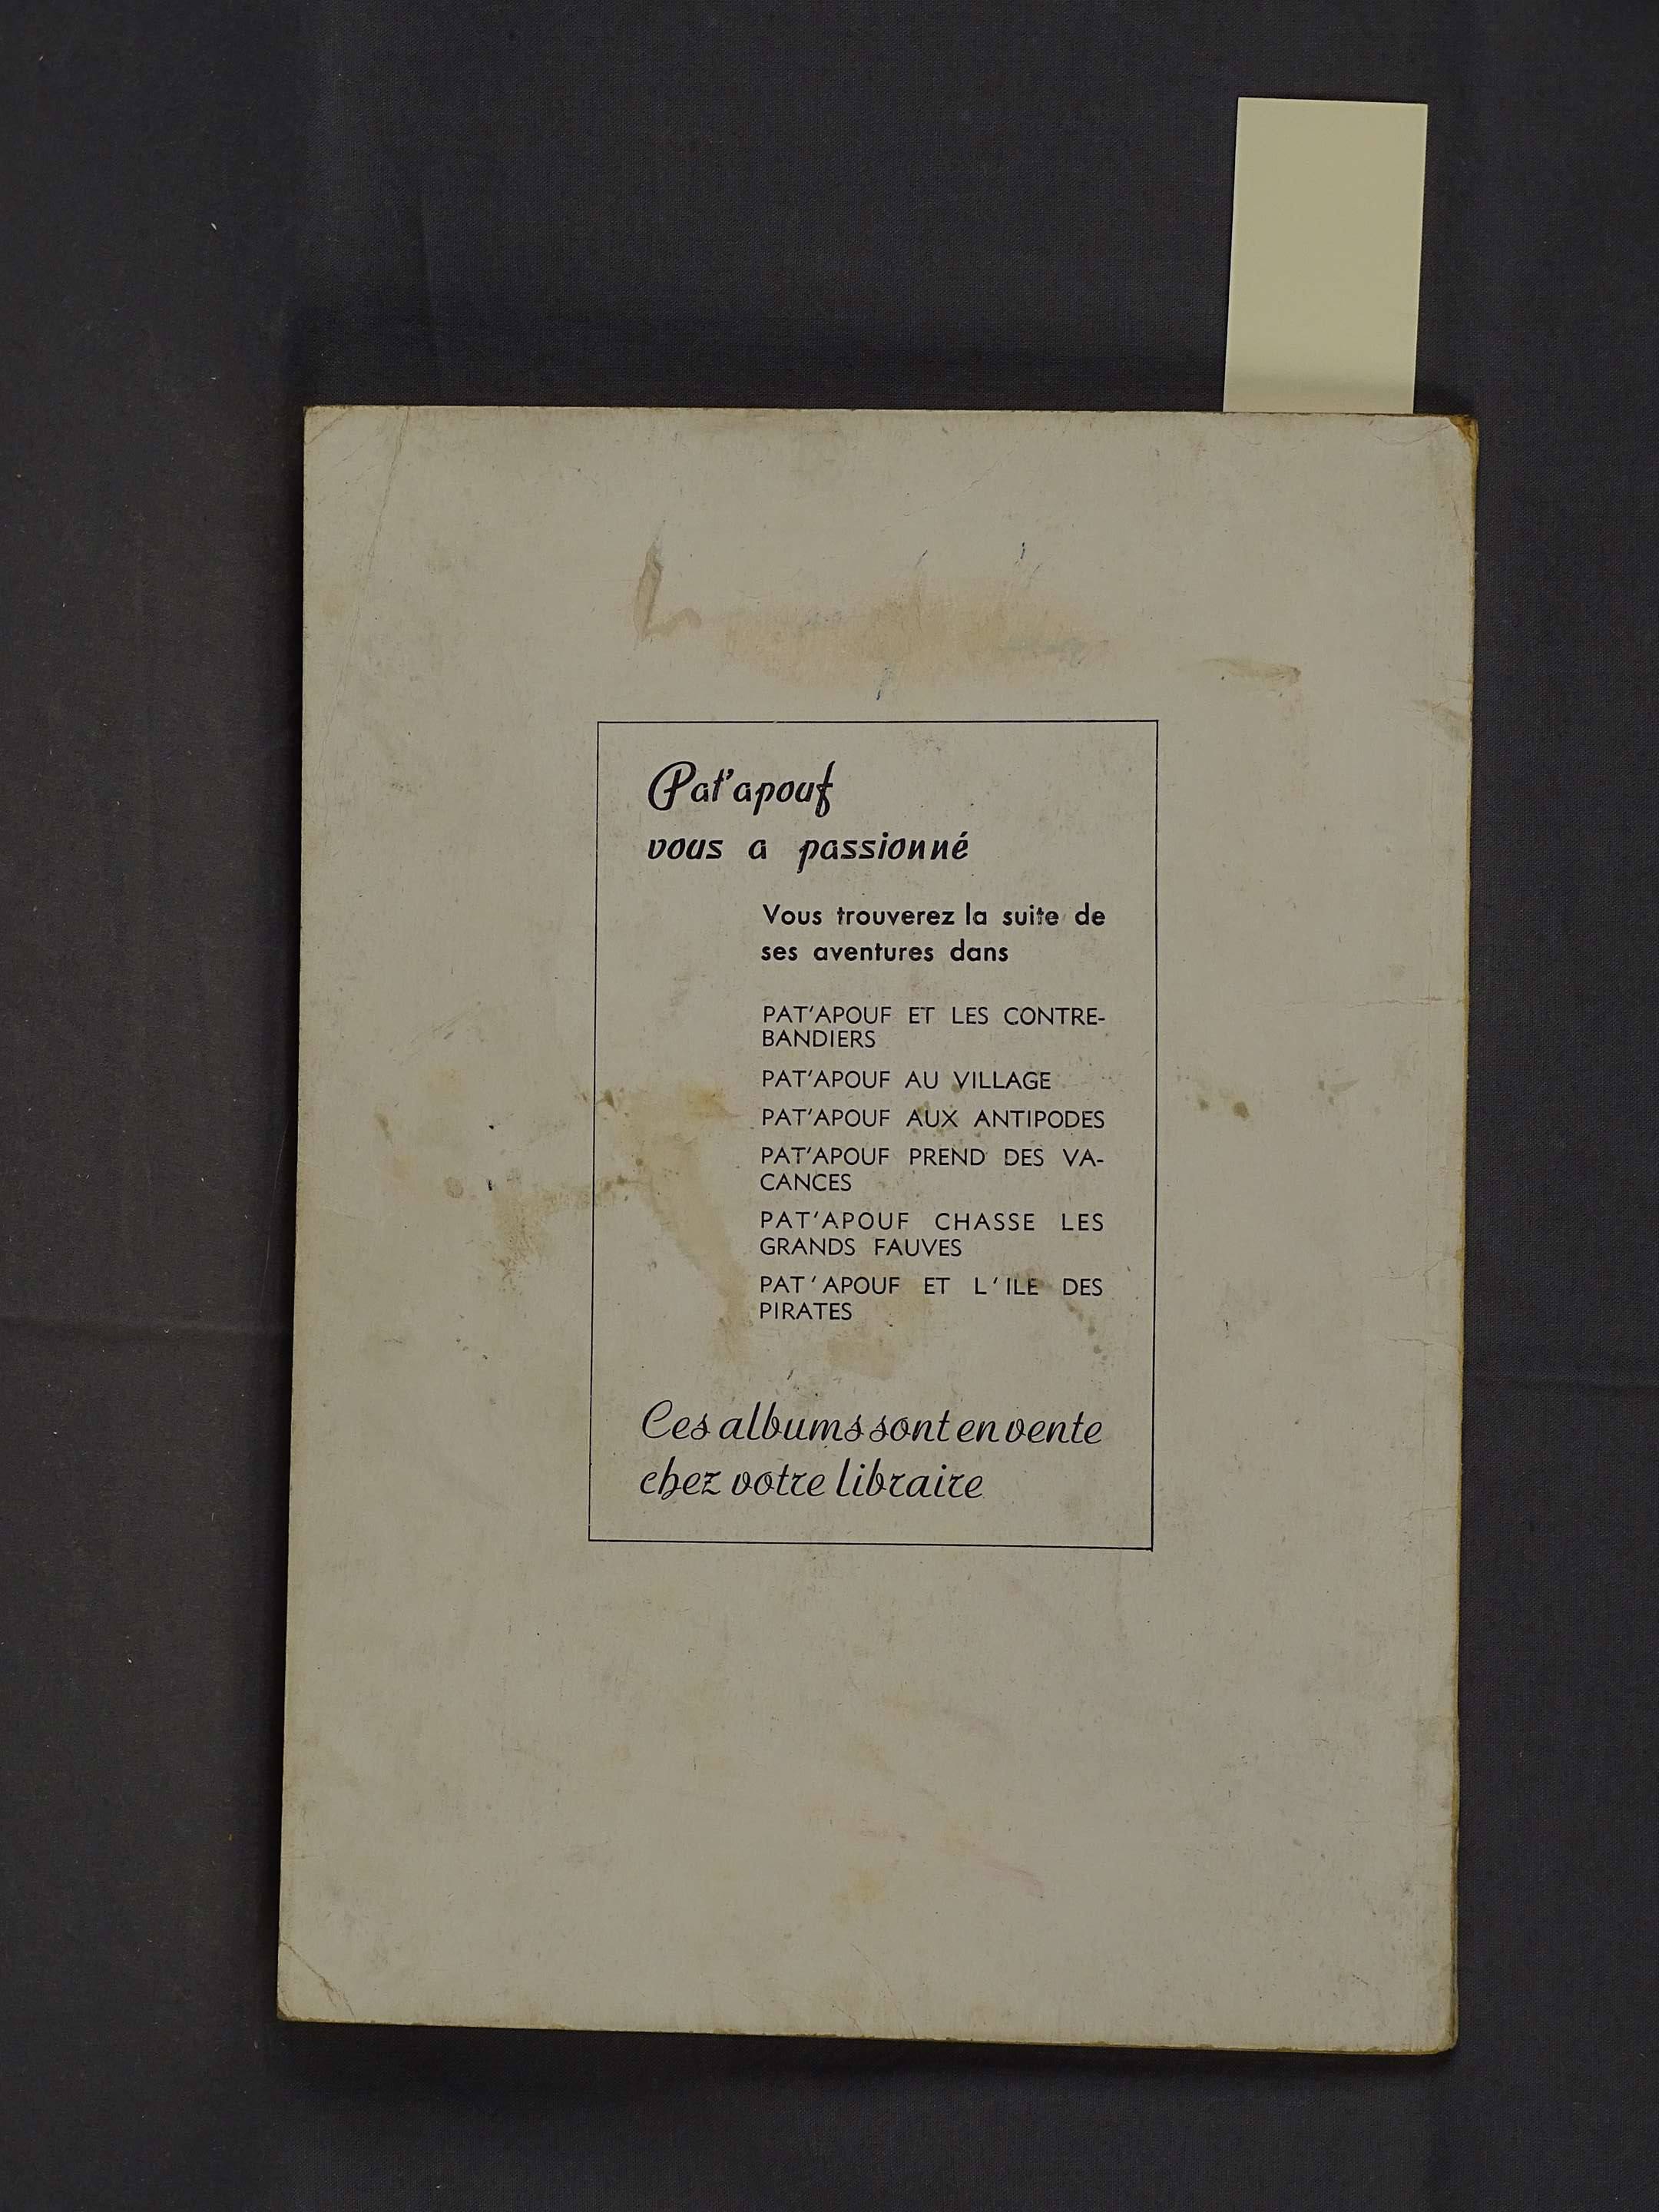 Pat'apouf
vous a passionné
Vous trouverez la suite de
ses aventures dans
PAT'APOUF ET LES CONTRE-
BANDIERS
PAT'APOUF AU VILLAGE
PAT'APOUF AUX ANTIPODES
PAT'APOUF PREND DES VA-
CANCES
PAT'APOUF CHASSE LES
GRANDS FAUVES
PAT'APOUF ET L'ILE DES
PIRATES
Ces albums sont en vente
chez votre libraire